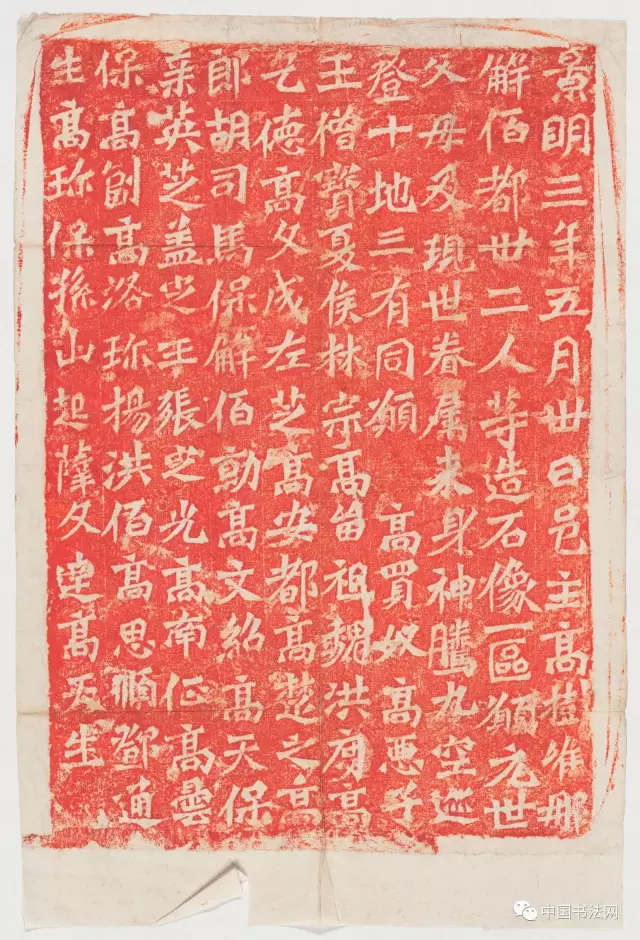 景明三年五月卅日邑主高樹唯那
解佰都卅二人等造石像一區願元世
父母及現世眷屬來身神騰九空迹
登十地三有同願 高買奴 高惡子
王僧寶夏侯林宗高留祖魏洪度高
乞德高文成左芝高安都高楚之高
郎胡司馬保解佰勍高文紹高天保
秉英芝盖定王張芝光高南征高曇
保高副高洛珎楊洪佰高思順鄧通
生高珎保孫山起薛文達高天生
中国书法网